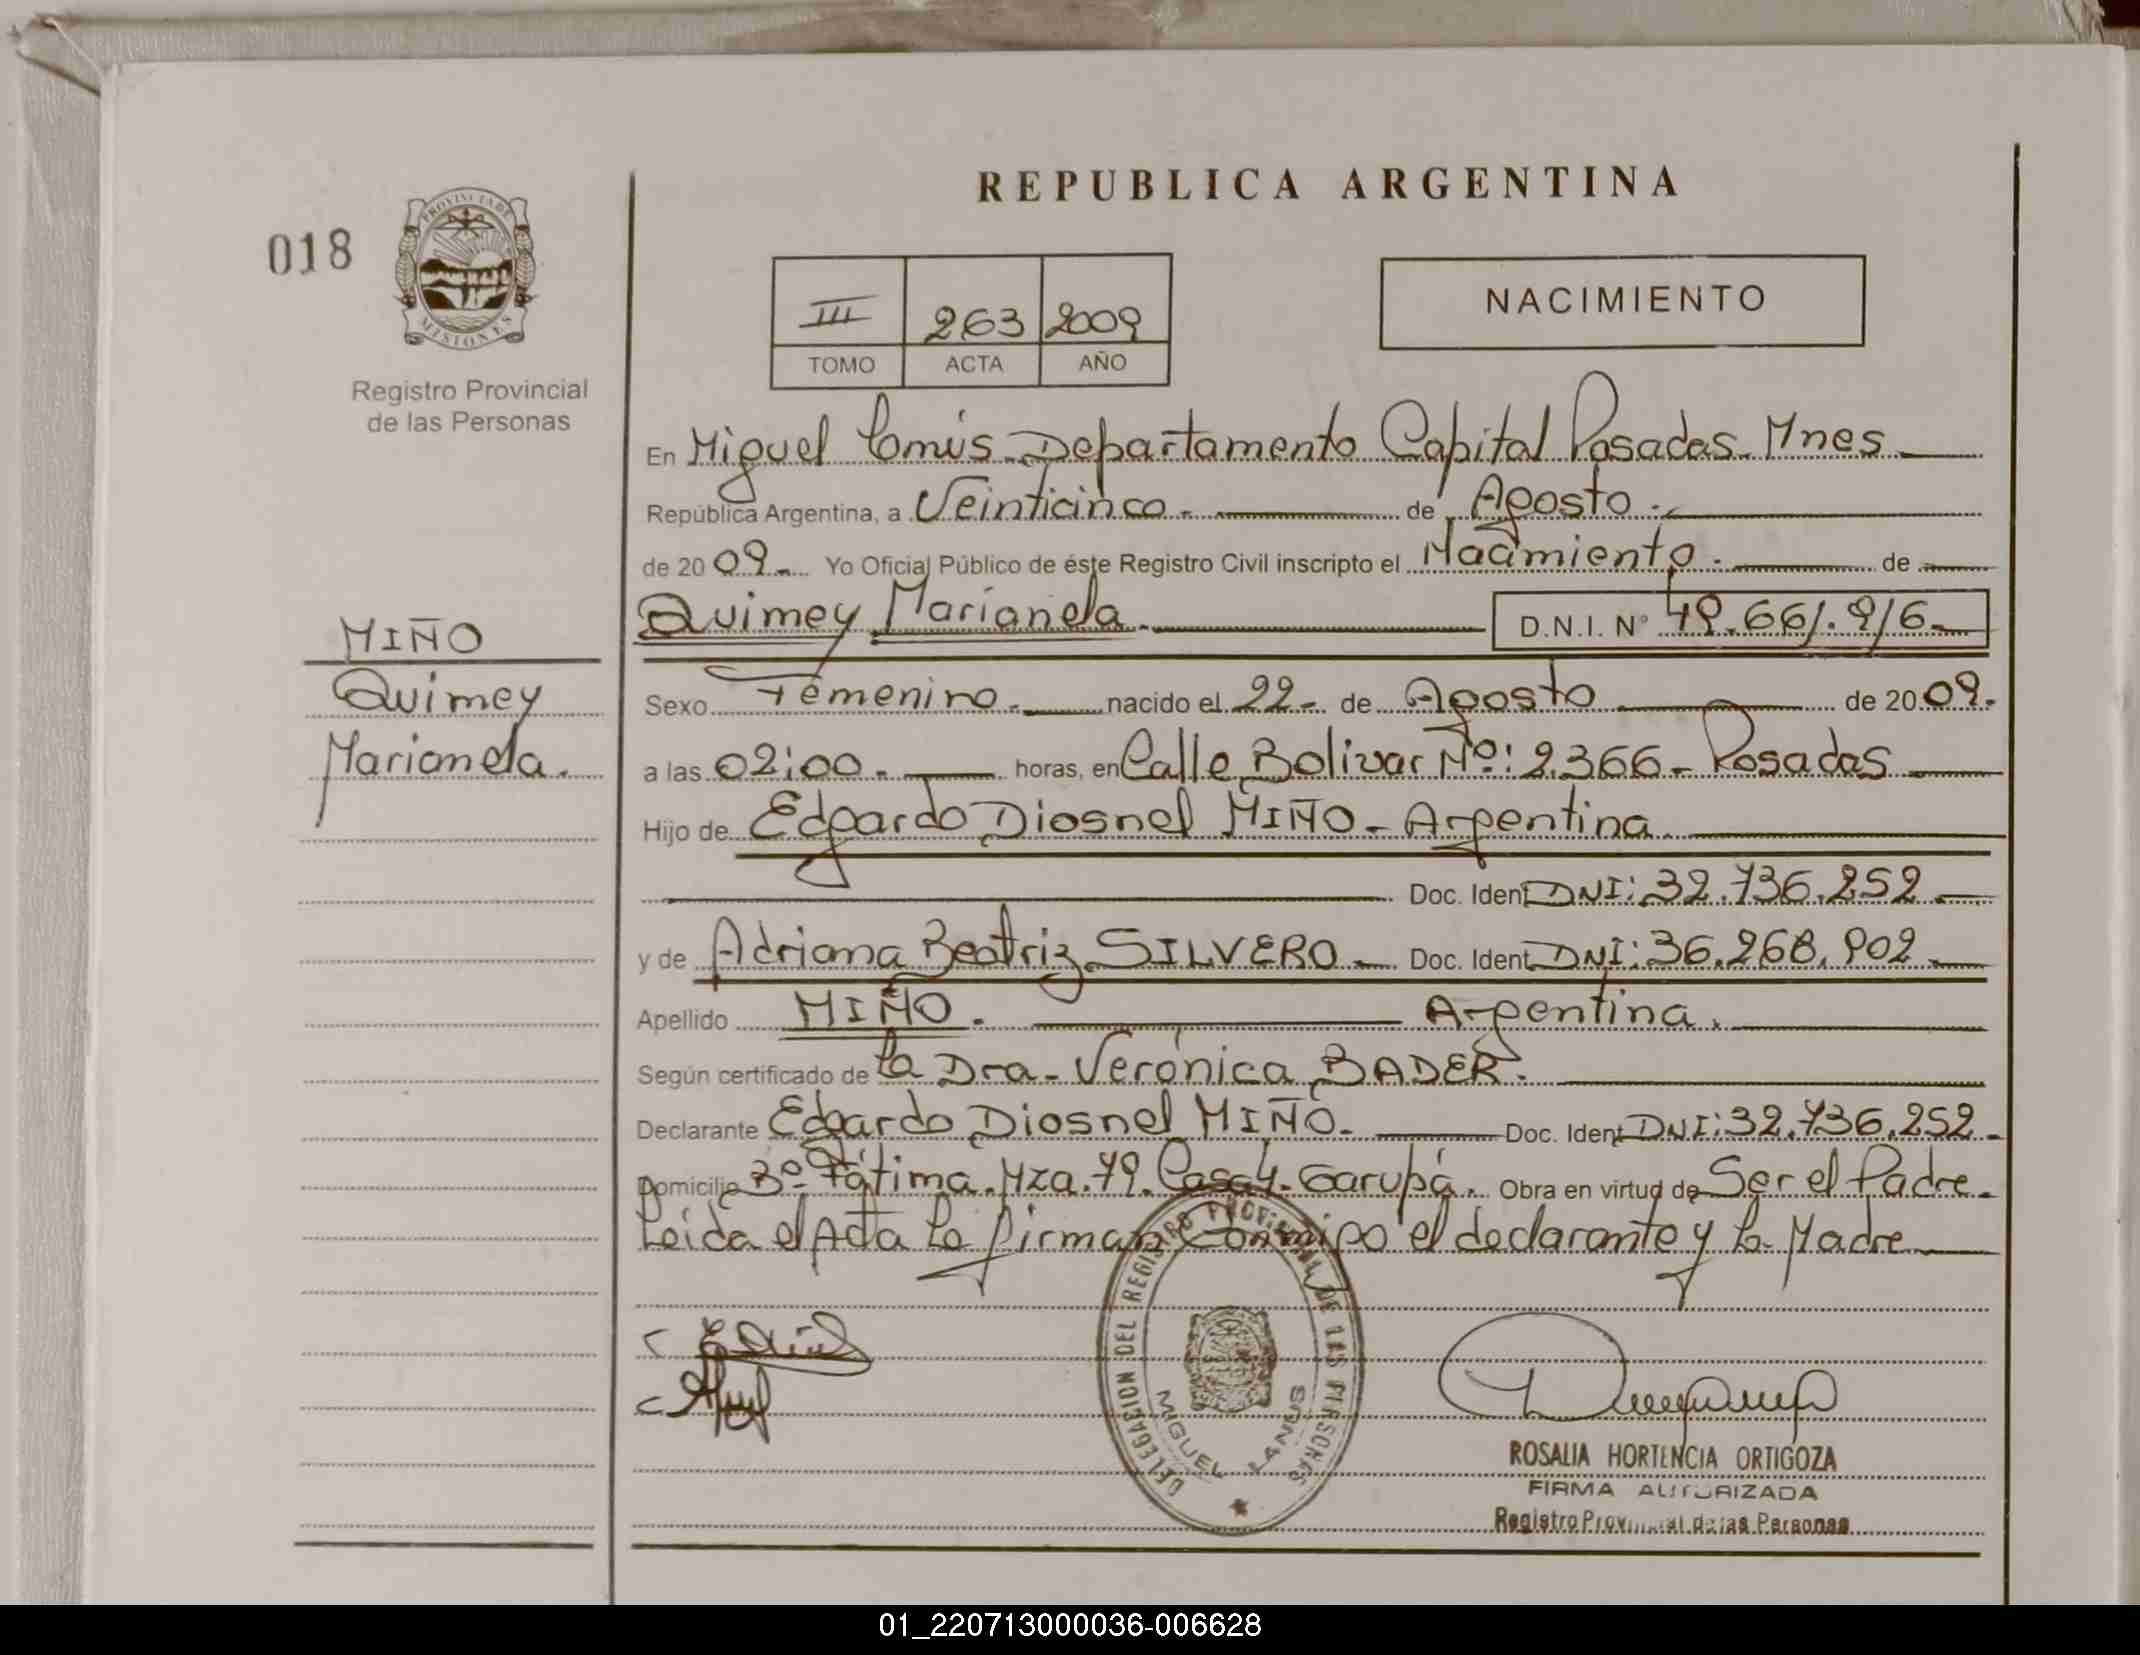 REPUBLICA ARGENTINA
018
PROVINCIA DE
MISIONES
Registro Provincial
de las Personas
III 263 2009
TOMO ACTA AÑO
NACIMIENTO
En Miguel Lanús Departamento Capital Posadas Mnes
República Argentina, a Veinticinco. de Agosto.
de 2009. Yo Oficial Público de éste Registro Civil inscripto el Nacimiento. de
Quimey Marianela. D.N.I. N° 49.661.916.
MIÑO
Quimey
Marianela.
Sexo Femenino. nacido el 22 de Agosto de 2009.
a las 02:00. horas, en Calle Bolivar Nº: 2.366 - Posadas
Hijo de Edgardo Diosnel MIÑO - Argentina.
Doc. Ident DNI: 32.736.252.
y de Adriana Beatriz SILVERO. Doc. Ident DNI: 36.268.902.
Apellido MIÑO. Argentina.
Según certificado de La Dra. Verónica BADER.
Declarante Edgardo Diosnel MIÑO. Doc. Ident DNI: 32.736.252.
Domicilio Bº Fátima. Mza. 79. Casa 4. Garupá. Obra en virtud de Ser el Padre.
Leída el Acta La firman conmigo el declarante y la Madre
DELEGACION DEL REGISTRO PROVINCIAL DE LAS PERSONAS
MIGUEL LANUS
ROSALIA HORTENCIA ORTIGOZA
FIRMA AUTORIZADA
Registro Provincial de las Personas
01_220713000036-006628